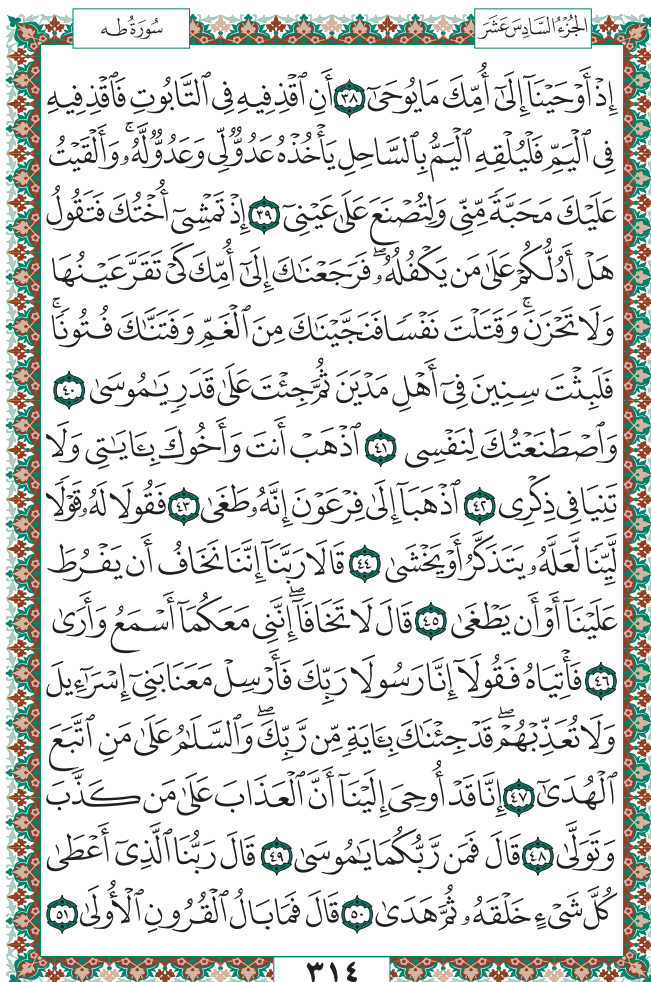 الجُزْءُ السَّادِسَ عَشَرَ
سُورَةُ طه
إِذْ أَوْحَيْنَآ إِلَىٰٓ أُمِّكَ مَا يُوحَىٰٓ ٣٨ أَنِ ٱقْذِفِيهِ فِى ٱلتَّابُوتِ فَٱقْذِفِيهِ
فِى ٱلْيَمِّ فَلْيُلْقِهِ ٱلْيَمُّ بِٱلسَّاحِلِ يَأْخُذْهُ عَدُوٌّ لِّى وَعَدُوٌّ لَّهُۥۚ وَأَلْقَيْتُ
عَلَيْكَ مَحَبَّةً مِّنِّى وَلِتُصْنَعَ عَلَىٰ عَيْنِىٓ ٣٩ إِذْ تَمْشِىٓ أُخْتُكَ فَتَقُولُ
هَلْ أَدُلُّكُمْ عَلَىٰ مَن يَكْفُلُهُۥۖ فَرَجَعْنَٰكَ إِلَىٰٓ أُمِّكَ كَىْ تَقَرَّ عَيْنُهَا
وَلَا تَحْزَنَۚ وَقَتَلْتَ نَفْسًا فَنَجَّيْنَٰكَ مِنَ ٱلْغَمِّ وَفَتَنَّٰكَ فُتُونًاۚ
فَلَبِثْتَ سِنِينَ فِىٓ أَهْلِ مَدْيَنَ ثُمَّ جِئْتَ عَلَىٰ قَدَرٍ يَٰمُوسَىٰ ٤٠
وَٱصْطَنَعْتُكَ لِنَفْسِى ٤١ ٱذْهَبْ أَنتَ وَأَخُوكَ بِـَٔايَٰتِى وَلَا
تَنِيَا فِى ذِكْرِى ٤٢ ٱذْهَبَآ إِلَىٰ فِرْعَوْنَ إِنَّهُۥ طَغَىٰ ٤٣ فَقُولَا لَهُۥ قَوْلًا
لَّيِّنًا لَّعَلَّهُۥ يَتَذَكَّرُ أَوْ يَخْشَىٰ ٤٤ قَالَا رَبَّنَآ إِنَّنَا نَخَافُ أَن يَفْرُطَ
عَلَيْنَآ أَوْ أَن يَطْغَىٰ ٤٥ قَالَ لَا تَخَافَآۖ إِنَّنِى مَعَكُمَآ أَسْمَعُ وَأَرَىٰ
٤٦ فَأْتِيَاهُ فَقُولَآ إِنَّا رَسُولَا رَبِّكَ فَأَرْسِلْ مَعَنَا بَنِىٓ إِسْرَٰٓءِيلَ
وَلَا تُعَذِّبْهُمْۖ قَدْ جِئْنَٰكَ بِـَٔايَةٍ مِّن رَّبِّكَۖ وَٱلسَّلَٰمُ عَلَىٰ مَنِ ٱتَّبَعَ
ٱلْهُدَىٰٓ ٤٧ إِنَّا قَدْ أُوحِىَ إِلَيْنَآ أَنَّ ٱلْعَذَابَ عَلَىٰ مَن كَذَّبَ
وَتَوَلَّىٰ ٤٨ قَالَ فَمَن رَّبُّكُمَا يَٰمُوسَىٰ ٤٩ قَالَ رَبُّنَا ٱلَّذِىٓ أَعْطَىٰ
كُلَّ شَىْءٍ خَلْقَهُۥ ثُمَّ هَدَىٰ ٥٠ قَالَ فَمَا بَالُ ٱلْقُرُونِ ٱلْأُولَىٰ ٥١
٣١٤